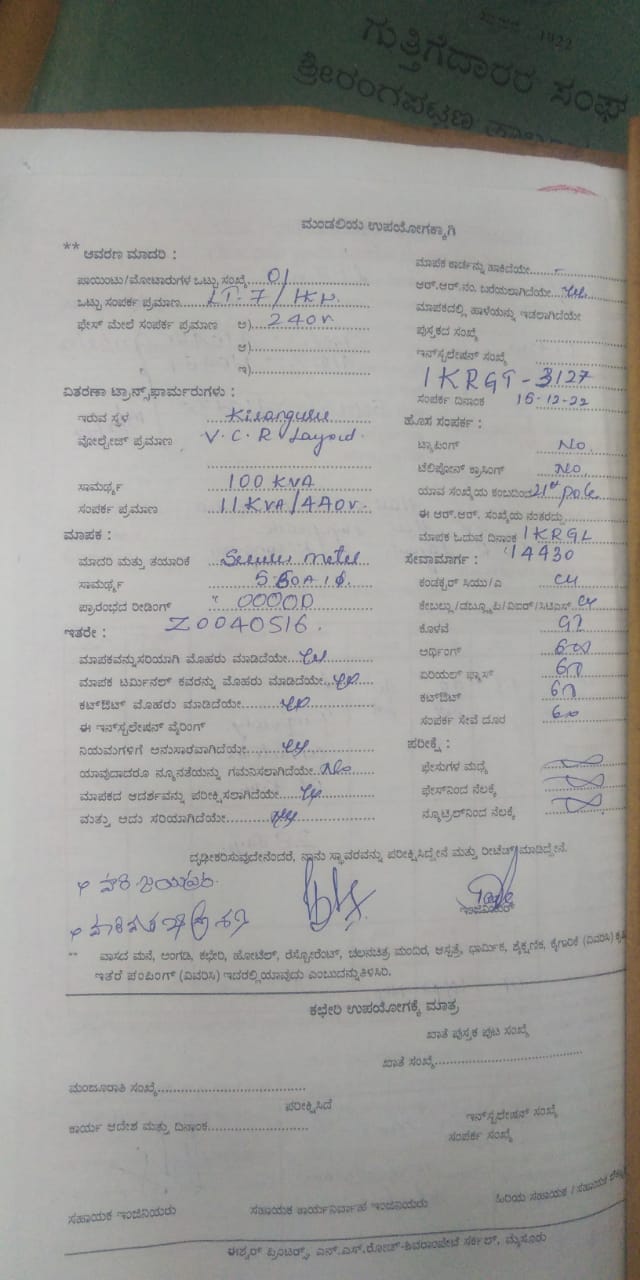 1922
ಗುತ್ತಿಗೆದಾರರ ಸಂಘ
ಶ್ರೀರಂಗಪಟ್ಟಣ
ಮಂಡಲಿಯ ಉಪಯೋಗಕ್ಕಾಗಿ
** ಆವರಣ ಮಾದರಿ :
ಪಾಯಿಂಟು/ಮೋಟಾರುಗಳ ಒಟ್ಟು ಸಂಖ್ಯೆ 01
ಒಟ್ಟು ಸಂಪರ್ಕ ಪ್ರಮಾಣ LT-7/1KW
ಫೇಸ್ ಮೇಲೆ ಸಂಪರ್ಕ ಪ್ರಮಾಣ ಅ) 240v
ಆ)
ಇ)
ವಿತರಣಾ ಟ್ರಾನ್ಸ್‌ಫಾರ್ಮರುಗಳು :
ಇರುವ ಸ್ಥಳ Kiranguru
ವೋಲ್ಟೇಜ್ ಪ್ರಮಾಣ V.C.R Layout
ಸಾಮರ್ಥ್ಯ 100 KVA
ಸಂಪರ್ಕ ಪ್ರಮಾಣ 11KVA/440v
ಮಾಪಕ :
ಮಾದರಿ ಮತ್ತು ತಯಾರಿಕೆ Secure meter
ಸಾಮರ್ಥ್ಯ
ಪ್ರಾರಂಭದ ರೀಡಿಂಗ್ 00000
ಇತರೇ : Z0040516
ಮಾಪಕವನ್ನು ಸರಿಯಾಗಿ ಮೊಹರು ಮಾಡಿದೆಯೇ
ಮಾಪಕ ಟರ್ಮಿನಲ್ ಕವರನ್ನು ಮೊಹರು ಮಾಡಿದೆಯೇ
ಕಟ್‌ಔಟ್ ಮೊಹರು ಮಾಡಿದೆಯೇ
ಈ ಇನ್‌ಸ್ಟಲೇಷನ್ ವೈರಿಂಗ್
ನಿಯಮಗಳಿಗೆ ಅನುಸಾರವಾಗಿದೆಯೇ
ಯಾವುದಾದರೂ ನ್ಯೂನತೆಯನ್ನು ಗಮನಿಸಲಾಗಿದೆಯೇ No
ಮಾಪಕದ ಆದರ್ಶವನ್ನು ಪರೀಕ್ಷಿಸಲಾಗಿದೆಯೇ
ಮತ್ತು ಅದು ಸರಿಯಾಗಿದೆಯೇ
ಮಾಪಕ ಕಾರ್ಡನ್ನು ಹಾಕಿದೆಯೇ -
ಆರ್.ಆರ್.ನಂ. ಬರೆಯಲಾಗಿದೆಯೇ
ಮಾಪಕದಲ್ಲಿ ಹಾಳೆಯನ್ನು ಇಡಲಾಗಿದೆಯೇ
ಪುಸ್ತಕದ ಸಂಖ್ಯೆ
ಇನ್‌ಸ್ಟಲೇಷನ್ ಸಂಖ್ಯೆ
1KRGT-3127
ಸಂಪರ್ಕ ದಿನಾಂಕ 15-12-22
ಹೊಸ ಸಂಪರ್ಕ :
ಟ್ಯಾಪಿಂಗ್ No
ಟೆಲಿಫೋನ್ ಕ್ರಾಸಿಂಗ್ No
ಯಾವ ಸಂಖ್ಯೆಯ ಕಂಬದಿಂದ 21st pole
ಈ ಆರ್.ಆರ್. ಸಂಖ್ಯೆಯ ನಂತರದ್ದು
ಮಾಪಕ ಓದುವ ದಿನಾಂಕ 1KRGL
ಸೇವಾಮಾರ್ಗ : 14430
ಕಂಡಕ್ಟರ್ ಸಿಯು/ಎ
ಕೇಬಲ್ಲು/ಡಬ್ಲ್ಯೂಪಿ/ವಿಐಆರ್/ಸಿಟಿಎಸ್
ಕೊಳವೆ
ಅರ್ಥಿಂಗ್
ಏರಿಯಲ್ ಫ್ಯೂಸ್
ಕಟ್‌ಔಟ್
ಸಂಪರ್ಕ ಸೇವೆ ದೂರ
ಪರೀಕ್ಷೆ :
ಫೇಸುಗಳ ಮಧ್ಯೆ
ಫೇಸ್‌ನಿಂದ ನೆಲಕ್ಕೆ
ನ್ಯೂಟ್ರಲ್‌ನಿಂದ ನೆಲಕ್ಕೆ
ದೃಢೀಕರಿಸುವುದೇನೆಂದರೆ, ನಾನು ಸ್ಥಾವರವನ್ನು ಪರೀಕ್ಷಿಸಿದ್ದೇನೆ ಮತ್ತು ರೀಟೆಸ್ಟ್ ಮಾಡಿದ್ದೇನೆ.
ಇಂಜಿನಿಯರ್
** ವಾಸದ ಮನೆ, ಅಂಗಡಿ, ಕಛೇರಿ, ಹೋಟೆಲ್, ರೆಸ್ಟೋರೆಂಟ್, ಚಲನಚಿತ್ರ ಮಂದಿರ, ಆಸ್ಪತ್ರೆ, ಧಾರ್ಮಿಕ, ಶೈಕ್ಷಣಿಕ, ಕೈಗಾರಿಕೆ (ವಿವರಿಸಿ)
ಇತರೆ ಪಂಪಿಂಗ್ (ವಿವರಿಸಿ) ಇದರಲ್ಲಿ ಯಾವುದು ಎಂಬುದನ್ನು ತಿಳಿಸಿರಿ.
ಕಛೇರಿ ಉಪಯೋಗಕ್ಕೆ ಮಾತ್ರ
ಖಾತೆ ಪುಸ್ತಕ ಪುಟ ಸಂಖ್ಯೆ
ಖಾತೆ ಸಂಖ್ಯೆ
ಮಂಜೂರಾತಿ ಸಂಖ್ಯೆ
ಪರೀಕ್ಷಿಸಿದೆ
ಕಾರ್ಯ ಆದೇಶ ಮತ್ತು ದಿನಾಂಕ
ಇನ್‌ಸ್ಟಲೇಷನ್ ಸಂಖ್ಯೆ
ಸಂಪರ್ಕ ಸಂಖ್ಯೆ
ಸಹಾಯಕ ಇಂಜಿನಿಯರು
ಸಹಾಯಕ ಕಾರ್ಯನಿರ್ವಾಹ ಇಂಜಿನಿಯರು
ಹಿರಿಯ ಸಹಾಯಕ / ಸಹಾಯಕ
ಈಶ್ವರ್ ಪ್ರಿಂಟರ್ಸ್, ಎನ್.ಎಸ್.ರೋಡ್-ಶಿವರಾಂಪೇಟೆ ಸರ್ಕಲ್, ಮೈಸೂರು